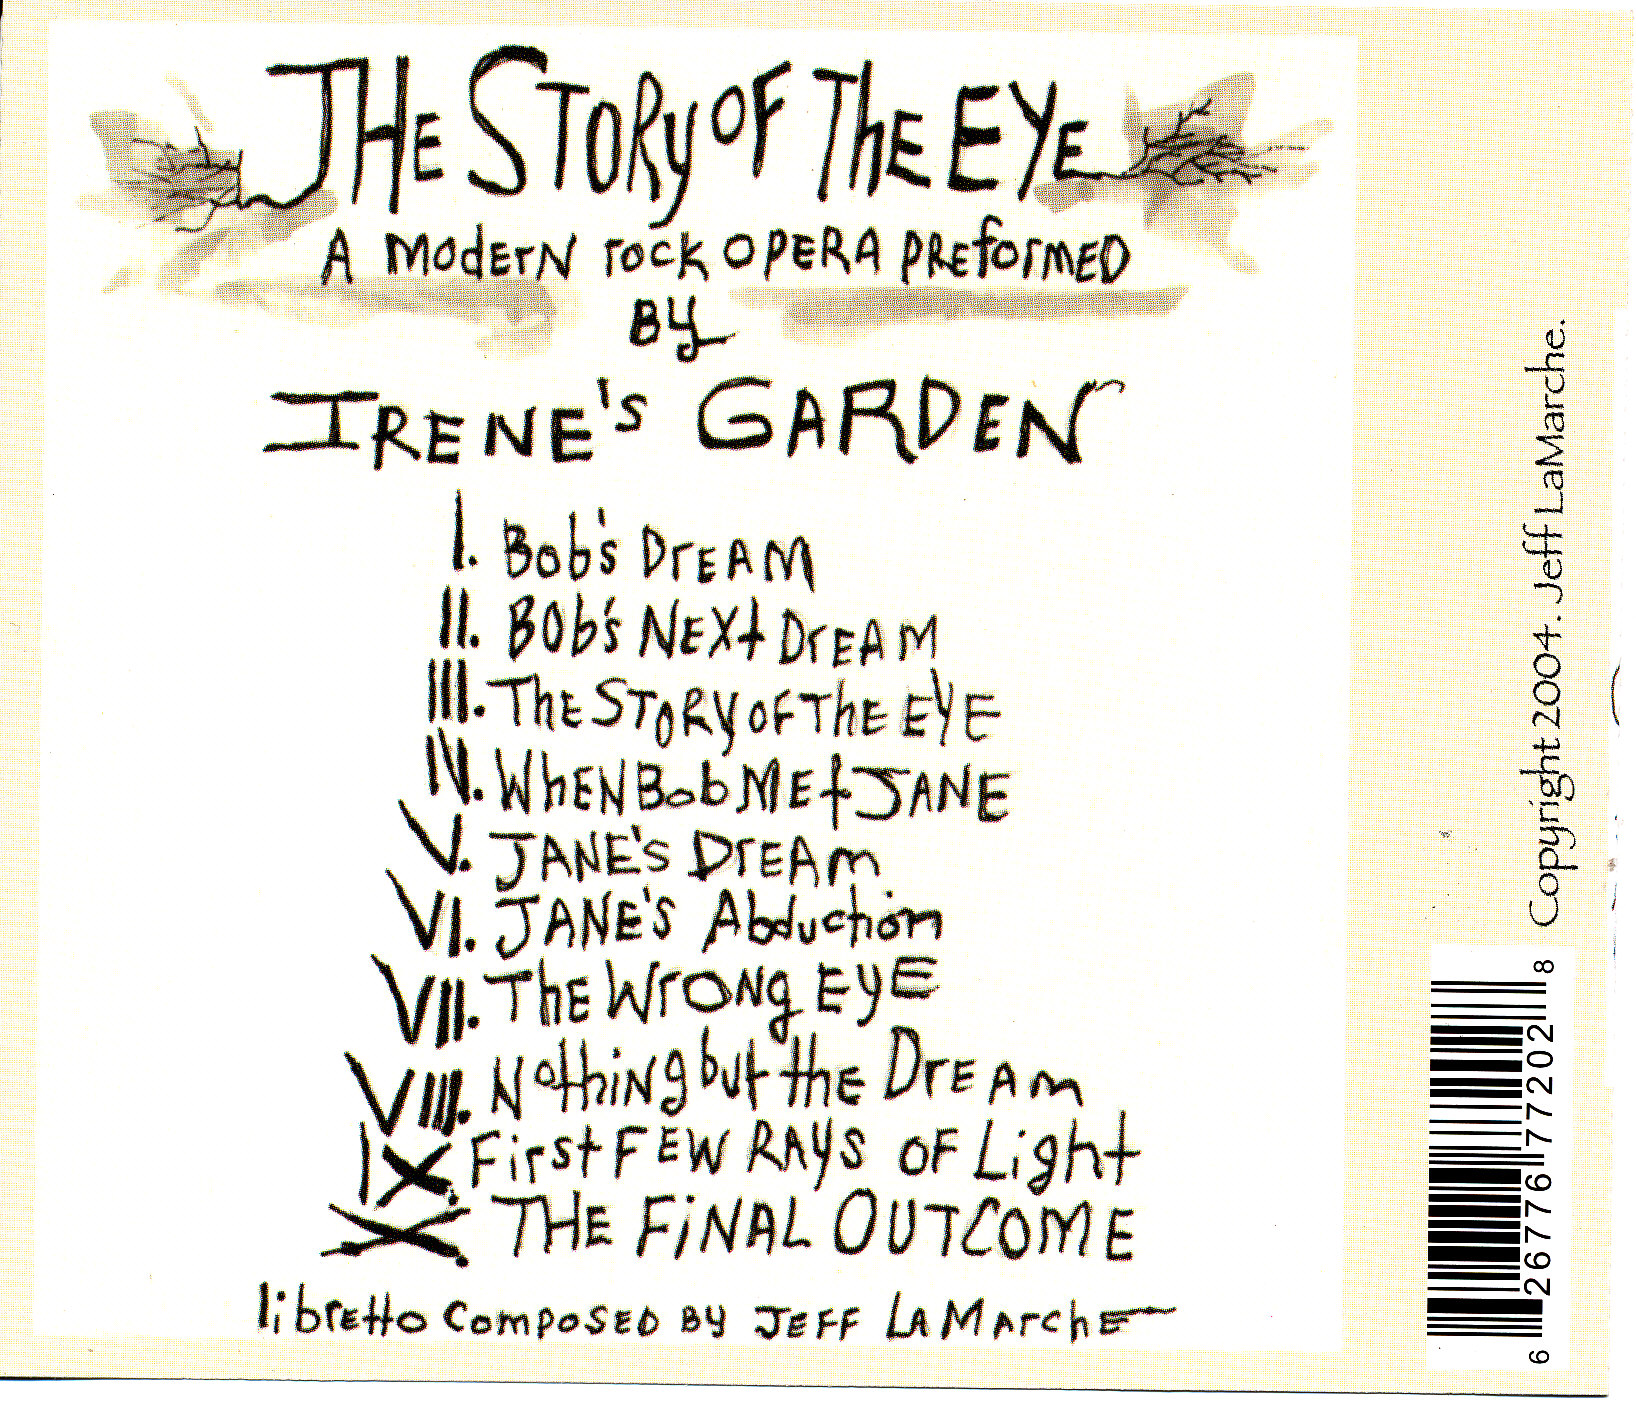 THE STORY OF THE EYE
A MODERN ROCK OPERA PREFORMED
BY
IRENE'S GARDEN
I. Bob's DREAM
II. BOb's NEXt DREAM
III. ThE STORY OF ThE EYE
IV. WhEN Bob MEt JANE
V. JANE'S DREAm
VI. JANE'S Abduction
VII. ThE WRONg EYE
VIII. Nothing but the DREAm
IX. First FEW RAYS OF Light
X. THE FiNAL OUTCOME
librEtto COMPOSED BY JEFF LAMArchE
Copyright 2004. Jeff LaMarche.
6 26776 77202 8